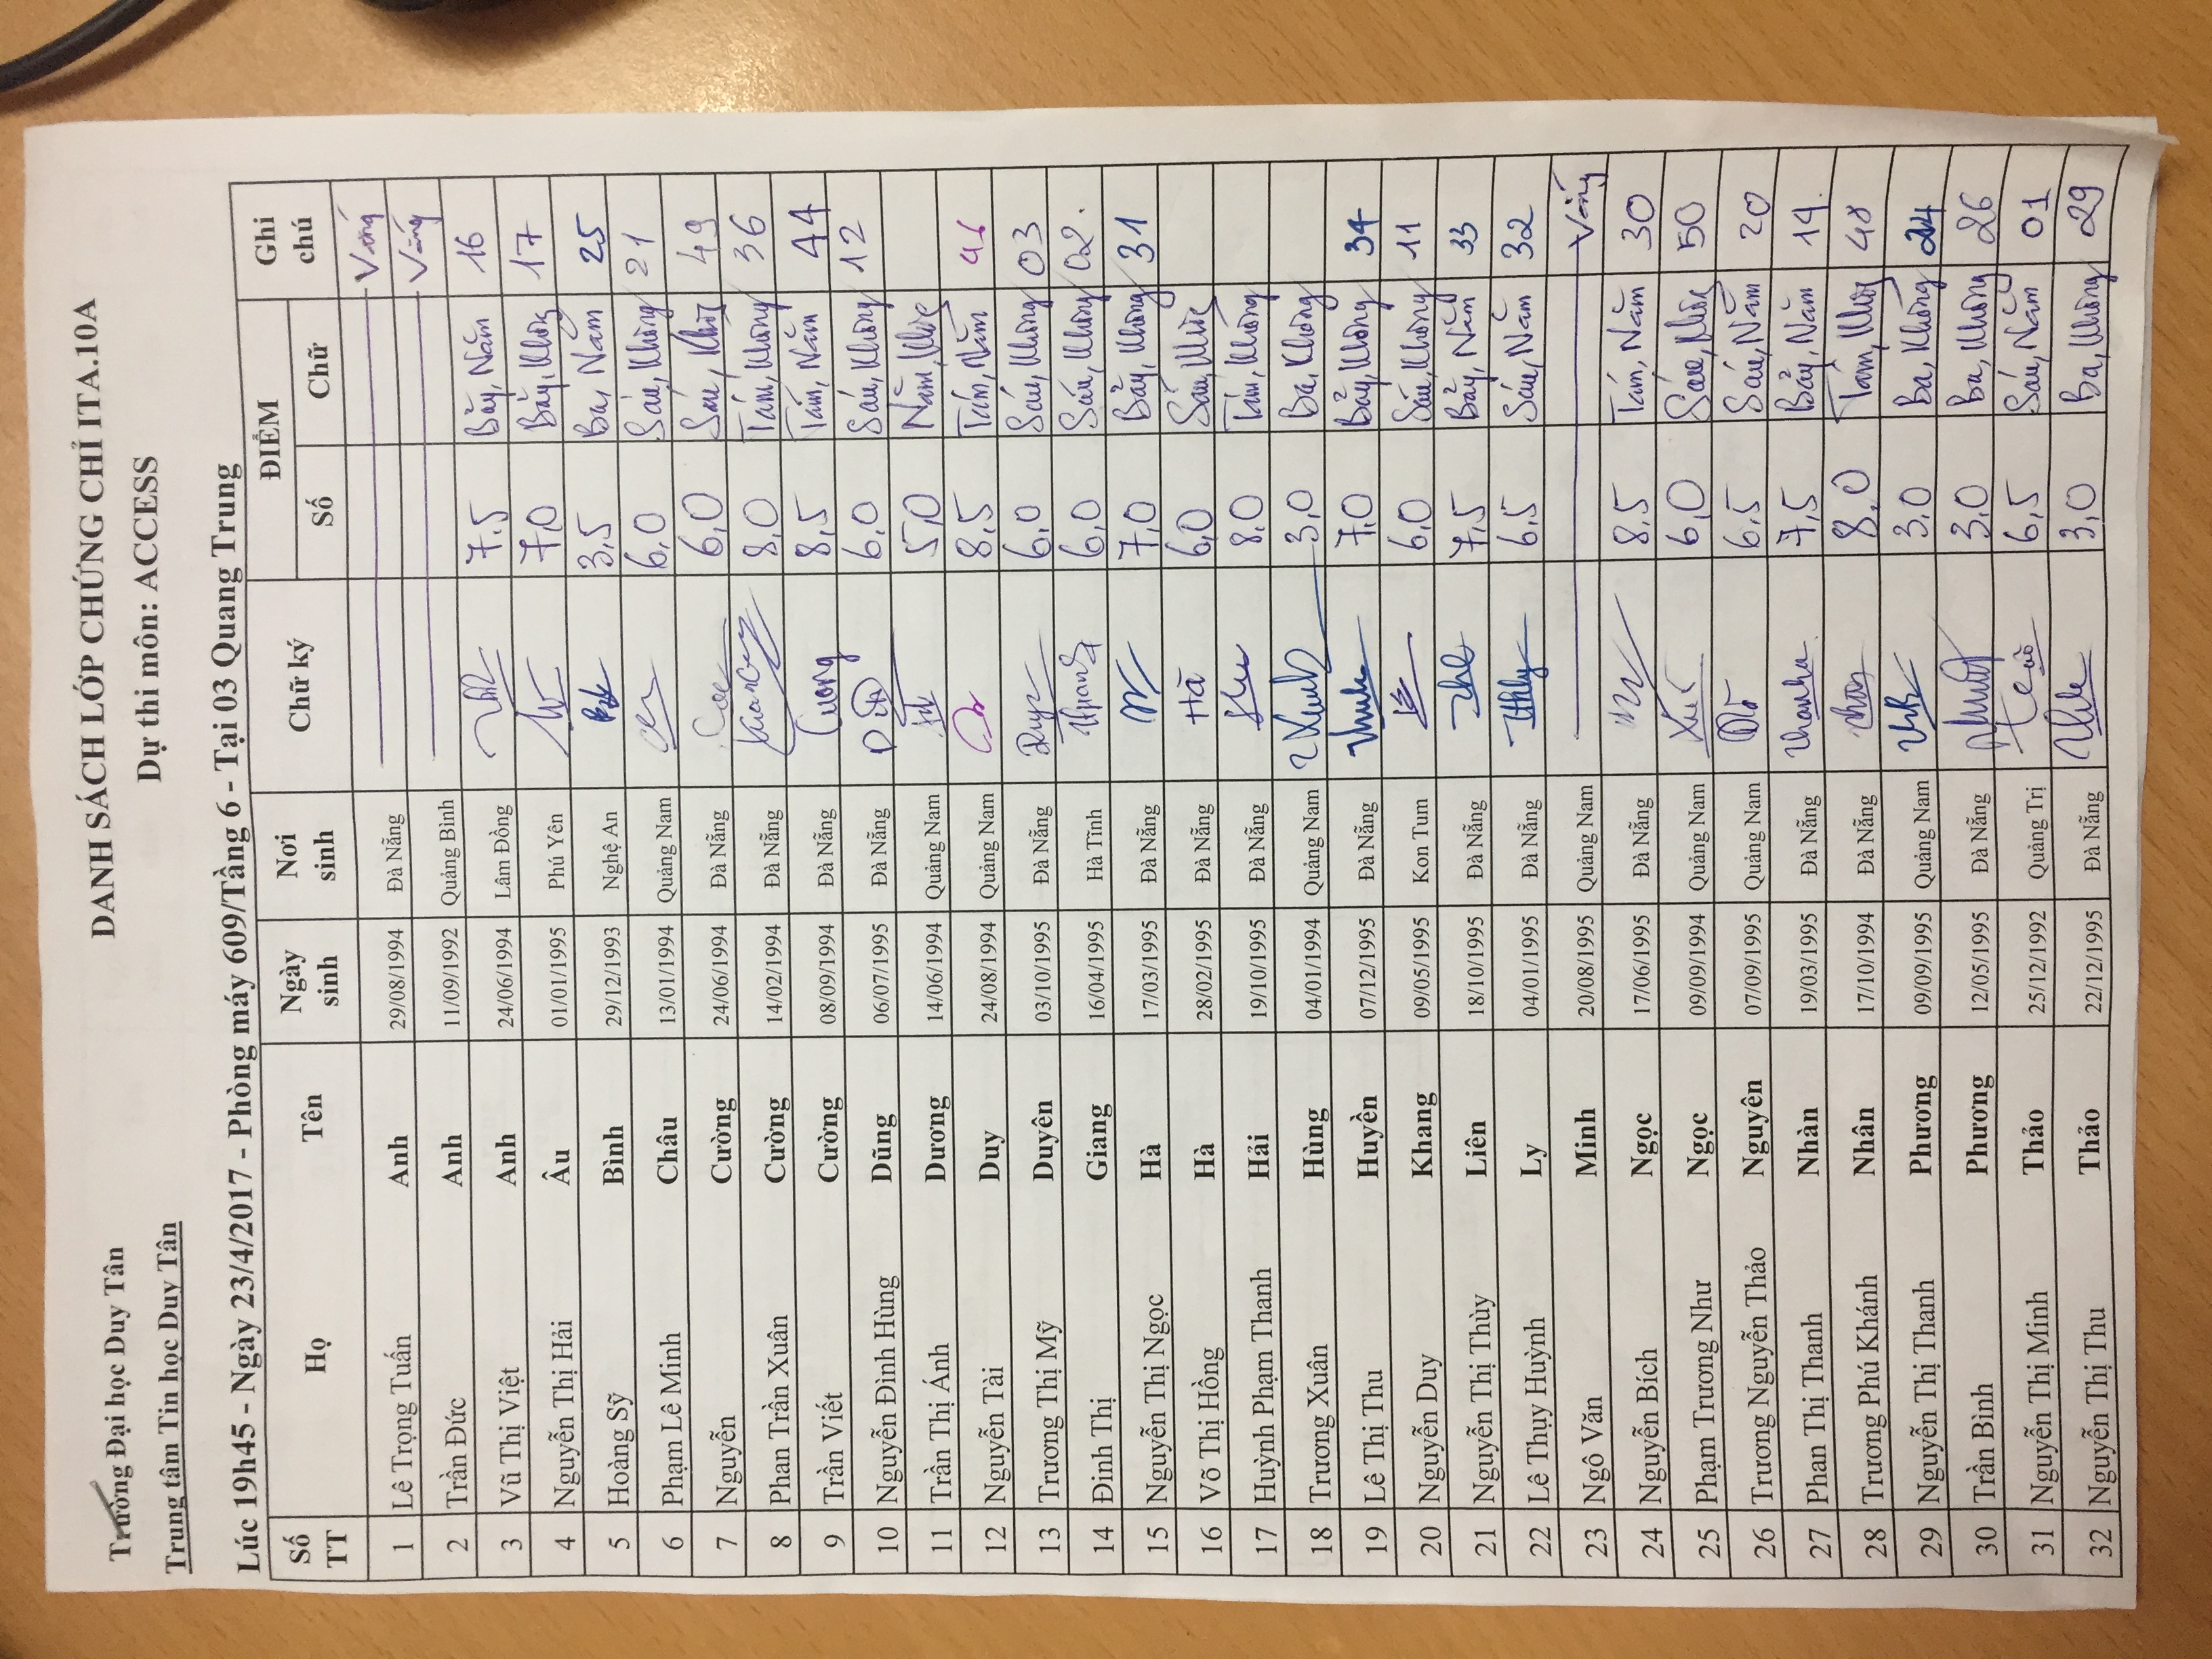 Trường Đại học Duy Tân
DANH SÁCH LỚP CHỨNG CHỈ ITA.10A
Trung tâm Tin học Duy Tân
Dự thi môn: ACCESS
Lúc 19h45 - Ngày 23/4/2017 - Phòng máy 609/Tầng 6 - Tại 03 Quang Trung
Số TT Họ Tên Ngày sinh Nơi sinh Chữ ký ĐIỂM Ghi chú
Số Chữ
1 Lê Trọng Tuấn Anh 29/08/1994 Đà Nẵng Vắng
2 Trần Đức Anh 11/09/1992 Quảng Bình Vắng
3 Vũ Thị Việt Anh 24/06/1994 Lâm Đồng 7.5 Bảy, Năm 16
4 Nguyễn Thị Hải Âu 01/01/1995 Phú Yên 7,0 Bảy, Không 17
5 Hoàng Sỹ Bình 29/12/1993 Nghệ An 3,5 Ba, Năm 25
6 Phạm Lê Minh Châu 13/01/1994 Quảng Nam 6,0 Sáu, Không 21
7 Nguyễn Cường 24/06/1994 Đà Nẵng 6,0 Sáu, Không 49
8 Phan Trần Xuân Cường 14/02/1994 Đà Nẵng 8,0 Tám, Không 36
9 Trần Viết Cường 08/09/1994 Đà Nẵng Cuong 8,5 Tám, Năm 44
10 Nguyễn Đình Hùng Dũng 06/07/1995 Đà Nẵng 6,0 Sáu, Không 12
11 Trần Thị Ánh Dương 14/06/1994 Quảng Nam 5,0 Năm, Không
12 Nguyễn Tài Duy 24/08/1994 Quảng Nam 8,5 Tám, Năm
13 Trương Thị Mỹ Duyên 03/10/1995 Đà Nẵng 6,0 Sáu, Không 03
14 Đinh Thị Giang 16/04/1995 Hà Tĩnh 6,0 Sáu, Không 02.
15 Nguyễn Thị Ngọc Hà 17/03/1995 Đà Nẵng 7,0 Bảy, Không 31
16 Võ Thị Hồng Hà 28/02/1995 Đà Nẵng Hà 6,0 Sáu, Không
17 Huỳnh Phạm Thanh Hải 19/10/1995 Đà Nẵng 8,0 Tám, Không
18 Trương Xuân Hùng 04/01/1994 Quảng Nam 3,0 Ba, Không
19 Lê Thị Thu Huyền 07/12/1995 Đà Nẵng 7,0 Bảy, Không 34
20 Nguyễn Duy Khang 09/05/1995 Kon Tum 6,0 Sáu, Không 11
21 Nguyễn Thị Thùy Liên 18/10/1995 Đà Nẵng 7,5 Bảy, Năm 33
22 Lê Thụy Huỳnh Ly 04/01/1995 Đà Nẵng 6,5 Sáu, Năm 32
23 Ngô Văn Minh 20/08/1995 Quảng Nam Vắng
24 Nguyễn Bích Ngọc 17/06/1995 Đà Nẵng 8,5 Tám, Năm 30
25 Phạm Trương Như Ngọc 09/09/1994 Quảng Nam 6,0 Sáu, Không 50
26 Trương Nguyễn Thảo Nguyên 07/09/1995 Quảng Nam 6,5 Sáu, Năm 20
27 Phan Thị Thanh Nhàn 19/03/1995 Đà Nẵng 7,5 Bảy, Năm 19.
28 Trương Phú Khánh Nhân 17/10/1994 Đà Nẵng 8,0 Tám, Không 48
29 Nguyễn Thị Thanh Phương 09/09/1995 Quảng Nam 3,0 Ba, Không 24
30 Trần Bình Phương 12/05/1995 Đà Nẵng 3,0 Ba, Không 26
31 Nguyễn Thị Minh Thảo 25/12/1992 Quảng Trị 6,5 Sáu, Năm 01
32 Nguyễn Thị Thu Thảo 22/12/1995 Đà Nẵng 3,0 Ba, Không 29